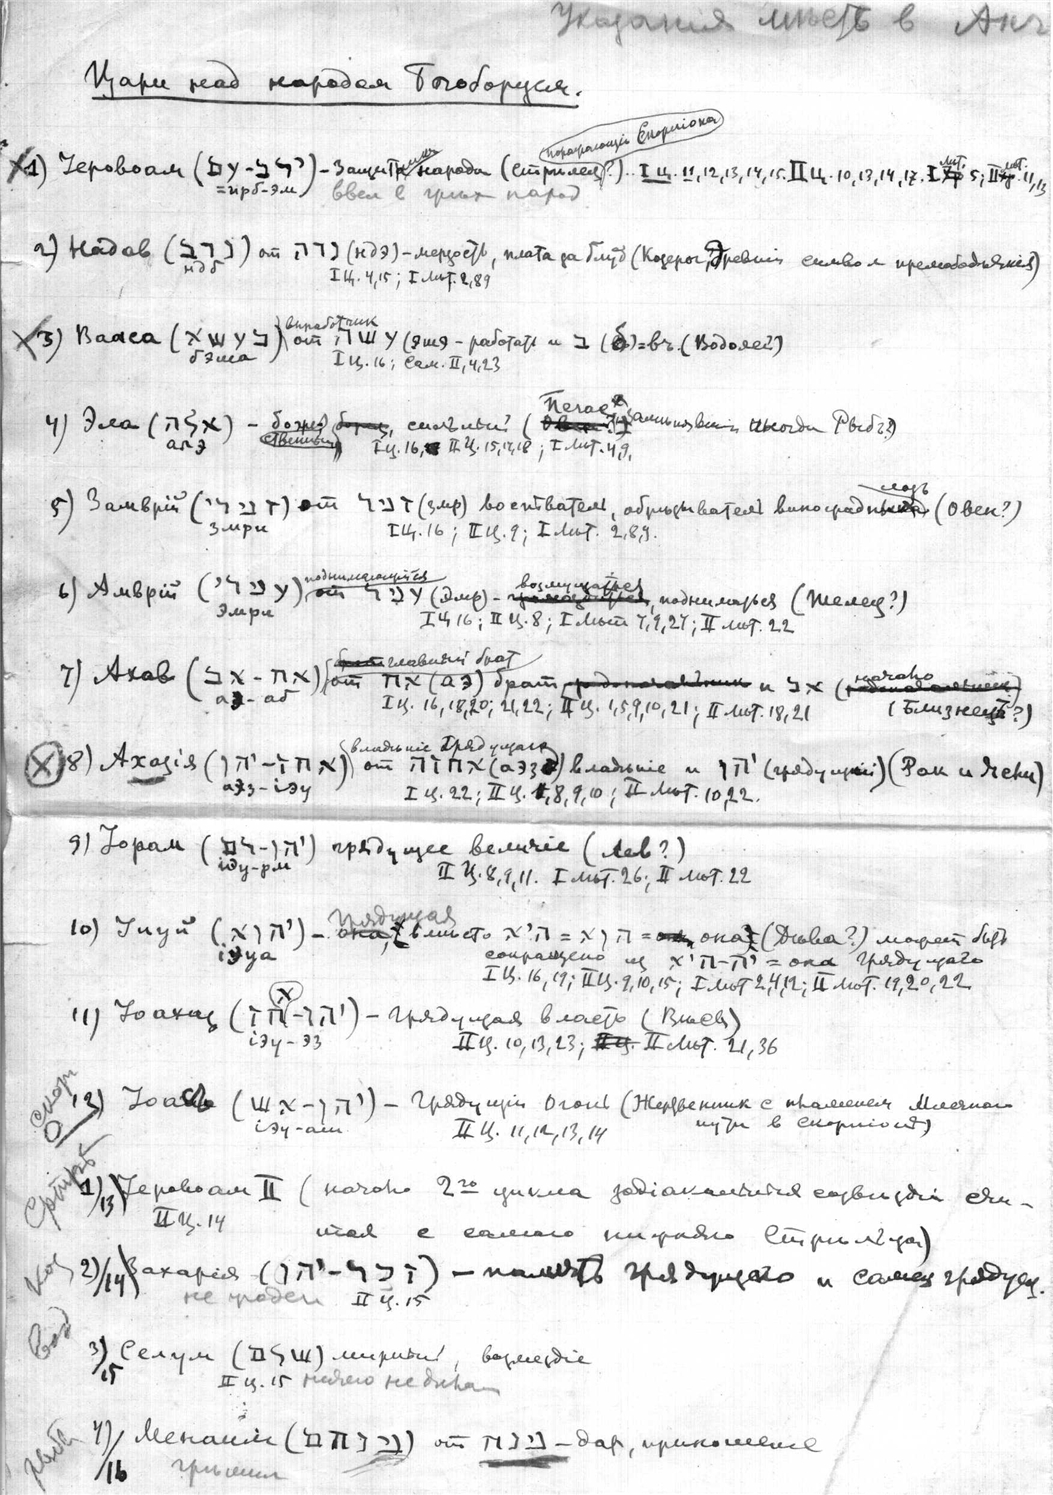 Указания мѣстъ в
Цари над народом Богоборцем.
поражающій Скорпіона
1) Іеровоам (ירב-עם) - Защита народа (Стрѣлец?). I Ц. 11, 12, 13, 14, 15. II Ц. 10, 13, 14, 17. I лѣт. 5; II лѣт. 11, 13
=ирб-эм ввел в грѣх народ
2) Надав (נדב) от נדה (ндэ) - мерзость, плата за блуд (Козерог, древній символ прелюбодѣянія)
ндб I Ц. 4, 15; I Лѣт. 2, 8, 9
выработчик
3) Вааса (בעשא) от עשה (эшэ - работать и ב (б) = въ. (Водолей)
бэша I Ц. 16; Сам. II, 4, 23
4) Эла (אלה) - божественный, сильный (
алэ I Ц. 16, II Ц. 15, 17, 18; I Лѣт. 4, 9,
5) Замврій (זמרי) от זמר (змр) воспѣватель, обрѣзыватель виноградных лозъ (Овен?)
змри I Ц. 16; II Ц. 9; I Лѣт. 2, 8, 9.
поднимающійся возмущаться
6) Амврій (עמרי) от עמר (эмр) - подниматься (Телец?)
эмри I Ц 16; II Ц. 8; I Лѣт 7, 9, 27; II Лѣт. 22
главный брат начало
7) Ахав (אח-אב) от אח (аэ) брат и אב
аэ-аб I Ц. 16, 18, 20, 21, 22; II Ц. 1, 5, 9, 10, 21; II Лѣт. 18, 21 (Близнец?)
владѣніе Грядущаго
8) Ахазія (אחז-יהו) от אחזה (аэзэ) владѣніе и יהו (грядущій) (Рак и Ясли)
аэз-іэу I Ц. 22; II Ц. 1, 8, 9, 10; II Лѣт. 10, 22.
9) Іорам (יהו-רם) грядущее величіе (Лев?)
іэу-рм II Ц. 8, 9, 11. I Лѣт. 26; II Лѣт. 22
Грядущая
10) Іиуй (יהוא) - вмѣсто היא = הוא = она (Дѣва?) может быть
іэуа сокращено из יה-היא = она грядущаго
I Ц. 16, 19; II Ц. 9, 10, 15; I Лѣт 2, 4, 12; II Лѣт. 19, 20, 22
א
11) Іоахаз (יהו-חז) - грядущая власть (Вѣсы)
іэу-эз II Ц. 10, 13, 23; II Лѣт. 21, 36
скорп
12) Іоас (יהו-אש) - Грядущій Огонь (Жертвенник с пламенем Млечнаго
іэу-аш II Ц. 11, 12, 13, 14 пути в Скорпіонѣ)
Стрѣл
1)/13) Іеровоам II (начало 2го цикла зодіакальных созвѣздій счи-
II Ц. 14 тая с самаго Стрѣльца)
Коз
2)/14) Захарія (זכר-יהו) - память грядущаго и самец грядущ.
II Ц. 15
Вод
3)/15 Селум (שלם) мирный, возмездіе
II Ц. 15 ничего не
4)/16 Менаим (מנחם) от מנח - дар, приношение
грѣшил